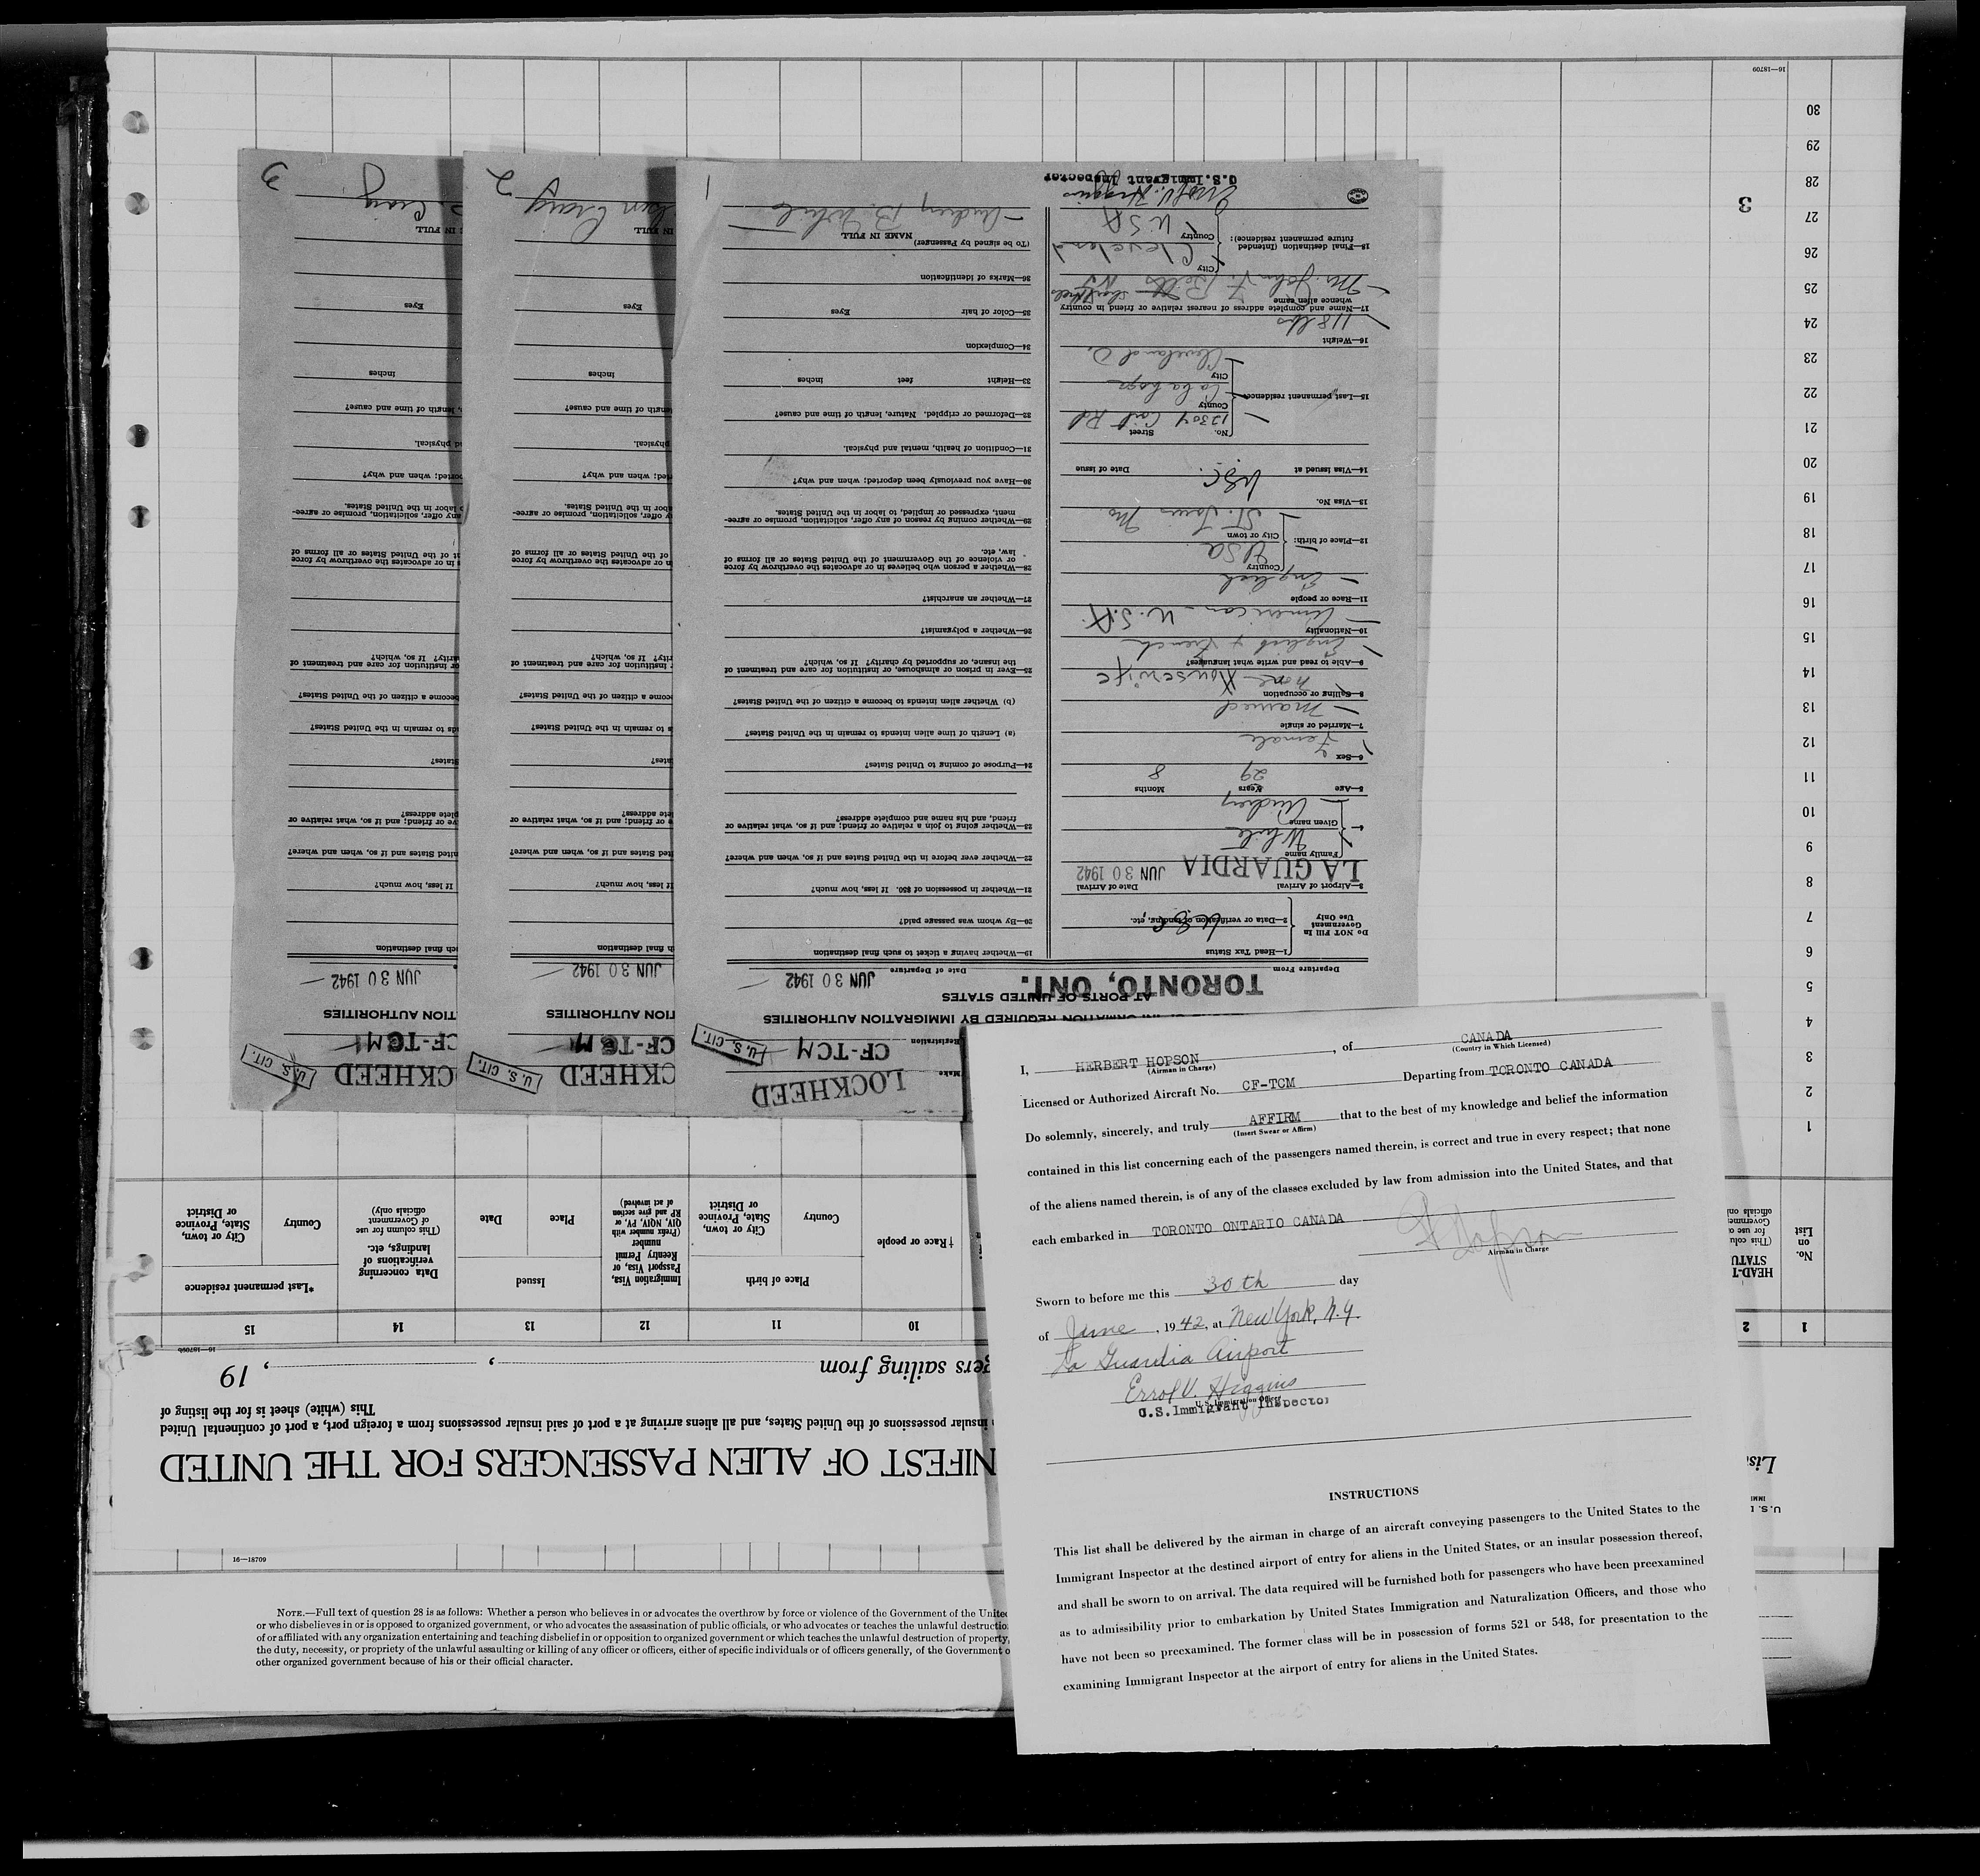 I, HERBERT HOPSON, of CANADA
(Airman in Charge) (Country in Which Licensed)
Licensed or Authorized Aircraft No. CF-TCM Departing from TORONTO CANADA
Do solemnly, sincerely, and truly AFFIRM that to the best of my knowledge and belief the information
(Insert Swear or Affirm)
contained in this list concerning each of the passengers named therein, is correct and true in every respect; that none
of the aliens named therein, is of any of the classes excluded by law from admission into the United States, and that
each embarked in TORONTO ONTARIO CANADA H Hopson
Airman in Charge
Sworn to before me this 30th day
of June, 1942, at New York, N.Y.
La Guardia Airport
Errol V. Higgins
U.S. Immigration Officer
U.S. Immigrant Inspector
INSTRUCTIONS
This list shall be delivered by the airman in charge of an aircraft conveying passengers to the United States to the
Immigrant Inspector at the destined airport of entry for aliens in the United States, or an insular possession thereof,
and shall be sworn to on arrival. The data required will be furnished both for passengers who have been preexamined
as to admissibility prior to embarkation by United States Immigration and Naturalization Officers, and those who
have not been so preexamined. The former class will be in possession of forms 521 or 548, for presentation to the
examining Immigrant Inspector at the airport of entry for aliens in the United States.
16—18709
NOTE.—Full text of question 28 is as follows: Whether a person who believes in or advocates the overthrow by force or violence of the Government of the Unite
or who disbelieves in or is opposed to organized government, or who advocates the assassination of public officials, or who advocates or teaches the unlawful destructio
of or affiliated with any organization entertaining and teaching disbelief in or opposition to organized government or which teaches the unlawful destruction of property,
the duty, necessity, or propriety of the unlawful assaulting or killing of any officer or officers, either of specific individuals or of officers generally, of the Government o
other organized government because of his or their official character.
LOCKHEED
Make
CF-TCM
Registration
U. S. CIT.
INFORMATION REQUIRED BY IMMIGRATION AUTHORITIES
AT PORTS OF UNITED STATES
TORONTO, ONT. JUN 30 1942
Departure From Date of Departure
DO NOT FILL IN
Government
Use Only
1—Head Tax Status
2—Data or verification of landing, etc. USC
3—Airport of Arrival Date of Arrival
LA GUARDIA JUN 30 1942
4— Family name White
Given name Audrey
5—Age Years 29 Months 8
6—Sex Female
7—Married or single Married
8—Calling or occupation none Housewife
9—Able to read and write what languages? English & French
10—Nationality American - U.S.A.
11—Race or people English
12—Place of birth: Country USA
City or town St. Louis Mo
13—Visa No. USC.
14—Visa issued at Date of issue
15—Last permanent residence No. Street 12304 Rd
County
City Cleveland O.
16—Weight 118 lbs
17—Name and complete address of nearest relative or friend in country
whence alien came
Mr. John F. Betts
18—Final destination (Intended
future permanent residence): City Cleveland
Country U.S.A
Errol V. Higgins
U.S. Immigrant Inspector
19—Whether having a ticket to such final destination
20—By whom was passage paid?
21—Whether in possession of $50. If less, how much?
22—Whether ever before in the United States and if so, when and where?
23—Whether going to join a relative or friend; and if so, what relative or
friend, and his name and complete address?
24—Purpose of coming to United States?
(a) Length of time alien intends to remain in the United States?
(b) Whether alien intends to become a citizen of the United States?
25—Ever in prison or almshouse, or institution for care and treatment of
the insane, or supported by charity? If so, which?
26—Whether a polygamist?
27—Whether an anarchist?
28—Whether a person who believes in or advocates the overthrow by force
or violence of the Government of the United States or all forms of
law, etc.
29—Whether coming by reason of any offer, solicitation, promise or agree-
ment, expressed or implied, to labor in the United States.
30—Have you previously been deported; when and why?
31—Condition of health, mental and physical.
32—Deformed or crippled. Nature, length of time and cause?
33—Height feet inches
34—Complexion
35—Color of hair Eyes
36—Marks of identification
(To be signed by Passenger) NAME IN FULL
Audrey B. White
1
CKHEED
CF-TCM
U. S. CIT.
TION AUTHORITIES
JUN 30 1942
Craig
2
CKHEED
CF-TCM
U. S. CIT.
TION AUTHORITIES
JUN 30 1942
Craig
3
NIFEST OF ALIEN PASSENGERS FOR THE UNITED
insular possessions of the United States, and all aliens arriving at a port of said insular possessions from a foreign port, a port of continental United
This (white) sheet is for the listing of
gers sailing from , , 19
16—18709b
1 2 10 11 12 13 14 15
No. on List
HEAD-T
STATU
(This colu
for use o
Governmen
officials onl
† Race or people
Place of birth
Country
City or town, State, Province or District
Immigration Visa, Passport Visa, or Reentry Permit number
(Prefix number with QIV, NQIV, PV, or RP and give section of act involved)
Issued
Place
Date
Data concerning verifications of landings, etc.
(This column for use of Government officials only)
*Last permanent residence
Country
City or town, State, Province or District
1
2
3
4
5
6
7
8
9
10
11
12
13
14
15
16
17
18
19
20
21
22
23
24
25
26
27
28
29
30
3
16—18709